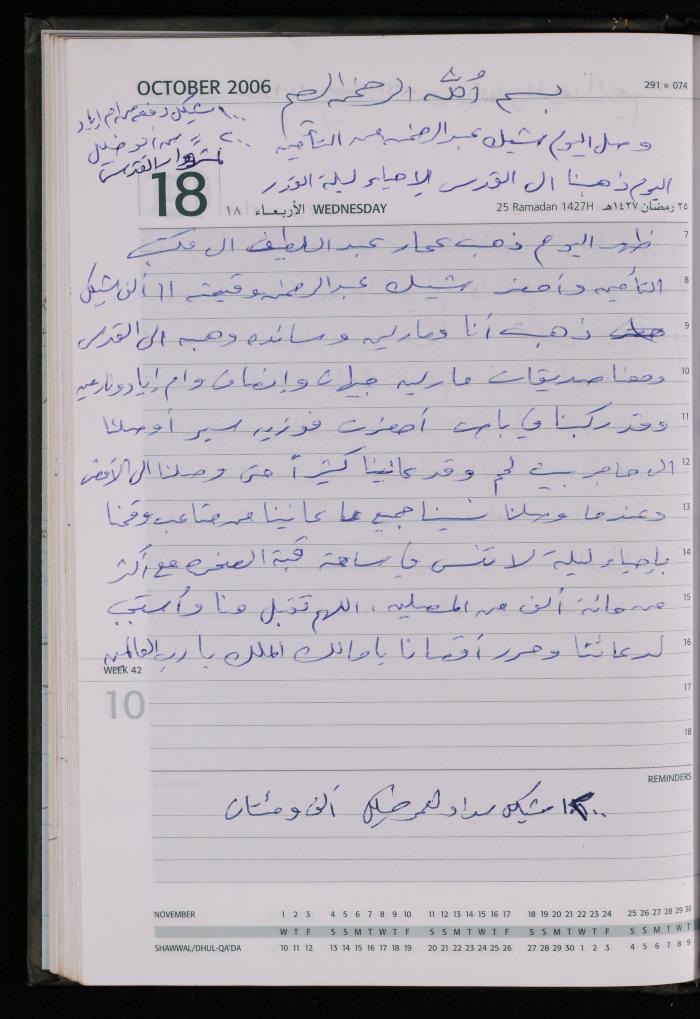 OCTOBER 2006
291 = 074
بسم الله الرحمن الرحيم
وصل اليوم شيك عبد الرحمن من التأمين
اليوم ذهبنا الى القدس لإحياء ليلة القدر
شيكل دفعة مرام اياد
٢٠٠ = من أبو خليل
مشوار القدس
18
١٨ الأربعاء WEDNESDAY
25 Ramadan 1427H ٢٥ رمضان ١٤٢٧هـ
7 ظهر اليوم ذهب عمار عبد اللطيف الى مكتب
8 التأمين وأحضر شيك عبد الرحمن وقيمته ١١ ألف شيكل
9 ذهبت أنا ومارلين وسائده وهبه الى القدس
10 ومعنا صديقات مارلين جيهان وإنصاف وام إياد ونارمين
11 وقد ركبنا في باص أحضرت فوزيه سير أوصلنا
12 الى حاجز بيت لحم وقد عانينا كثيراً حتى وصلنا الى الأقصى
13 وعندما وصلنا نسينا جميع ما عانينا من متاعب وقمنا
14 بإحياء ليلة لا تنسى في ساحة قبة الصخره مع أكثر
15 من مائة ألف من المصلين، اللهم تقبل منا وأستجب
16 لدعائنا وحرر أقصانا يا مالك الملك يا رب العالمين
WEEK 42
10
17
18
REMINDERS
١٢٠٠ شيكل سداد لعمر خليل ألف ومئتان
NOVEMBER 1 2 3 4 5 6 7 8 9 10 11 12 13 14 15 16 17 18 19 20 21 22 23 24 25 26 27 28 29 30
W T F S S M T W T F S S M T W T F S S M T W T F S S M T W T
SHAWWAL/DHUL-QA'DA 10 11 12 13 14 15 16 17 18 19 20 21 22 23 24 25 26 27 28 29 30 1 2 3 4 5 6 7 8 9